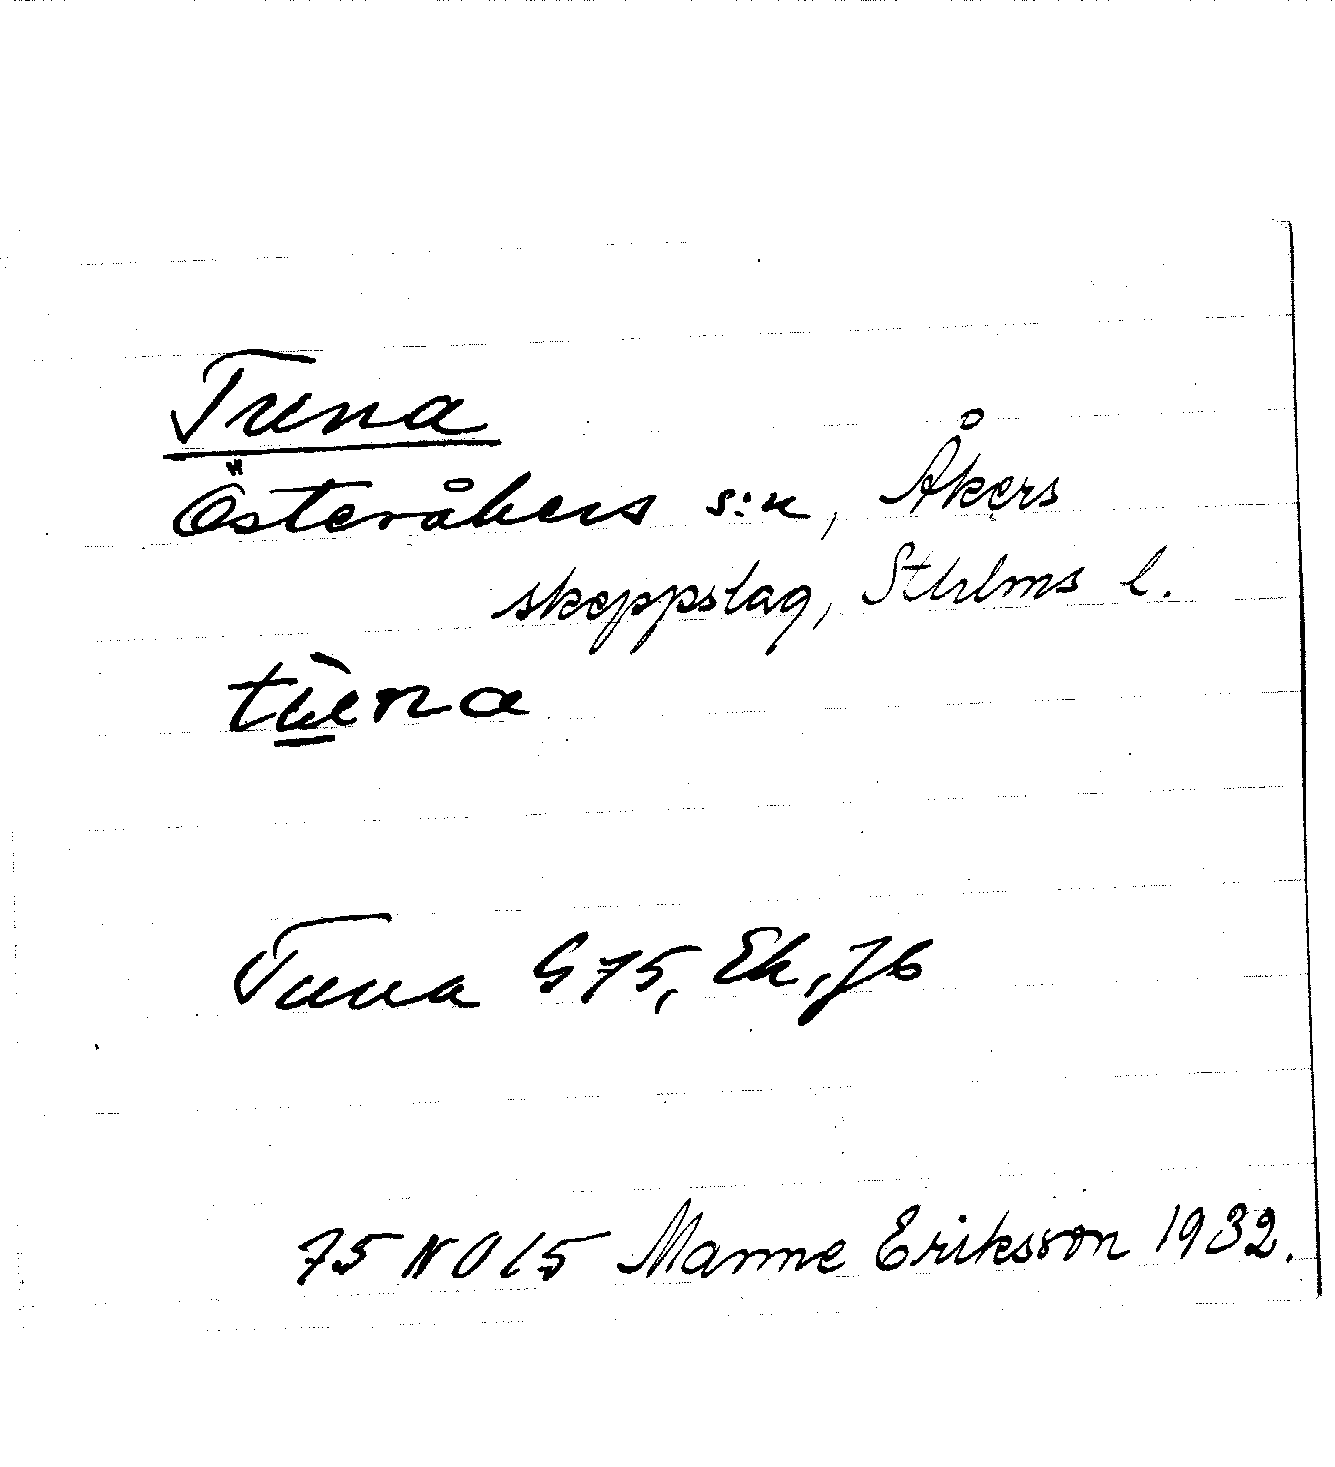 Tuna
Österåkers s:n, Åkers
skeppslag, Sthlms l.
tùna
Tuna G 75, Ek, Jb
75 NO 15 Manne Eriksson 1932.